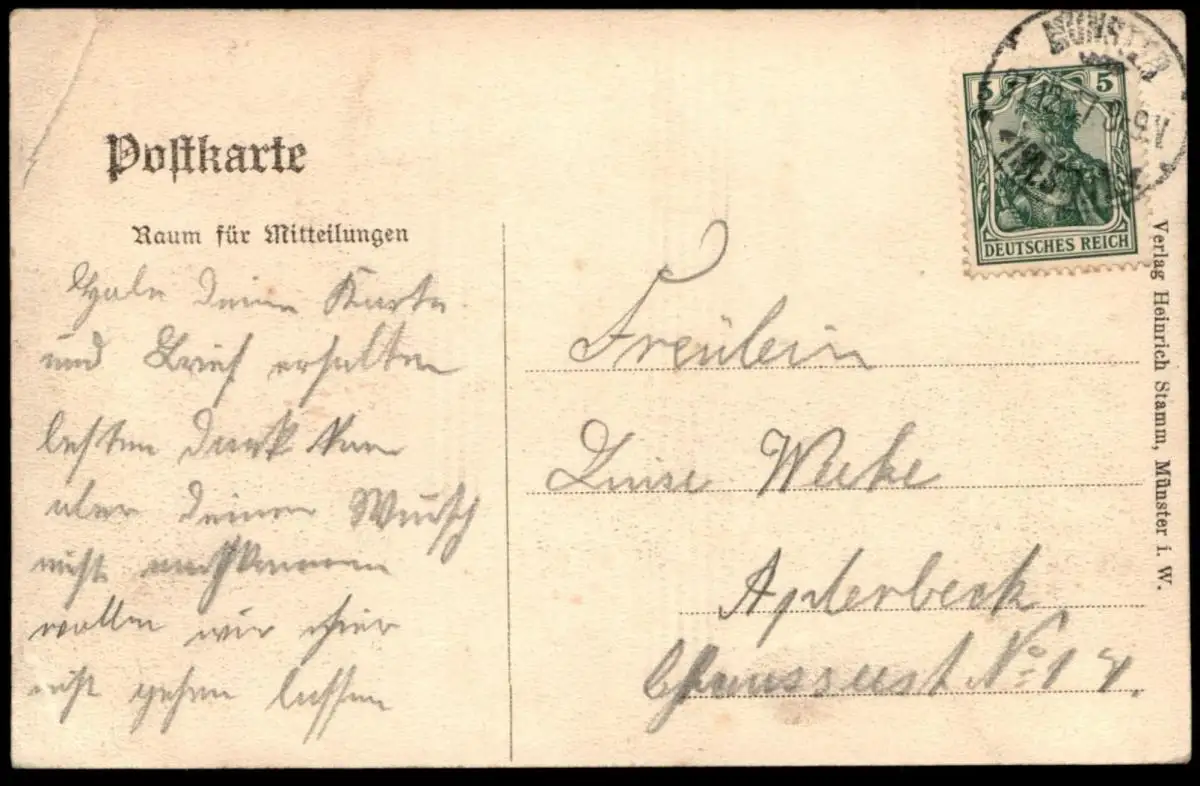 Postkarte
Raum für Mitteilungen
Habe deine Karte
und Brief erhalten
besten Dank kan
aber deinen Wunsch
nicht nachkommen
wollen wir hier
nicht gehen lassen
MÜNSTER
5 5
DEUTSCHES REICH
Freülein
Luise Weeke
Aplerbeck
Chausseest No 14.
Verlag Heinrich Stamm, Münster i. W.